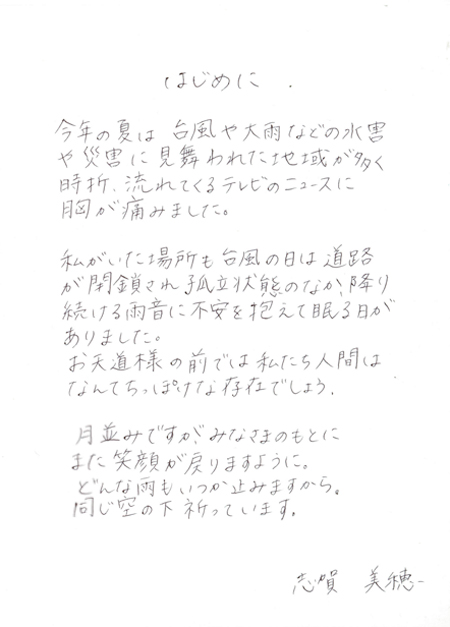 はじめに.
今年の夏は 台風や大雨などの水害
や災害に見舞われた地域が多く
時折、流れてくるテレビのニュースに
胸が痛みました。
私がいた場所も台風の日は道路
が閉鎖され孤立状態のなか、降り
続ける雨音に不安を抱えて眠る日が
ありました。
お天道様の前では私たち人間は
なんてちっぽけな存在でしょう。
月並みですが、みなさまのもとに
また笑顔が戻りますように。
どんな雨もいつか止みますから。
同じ空の下祈っています。
志賀 美穂